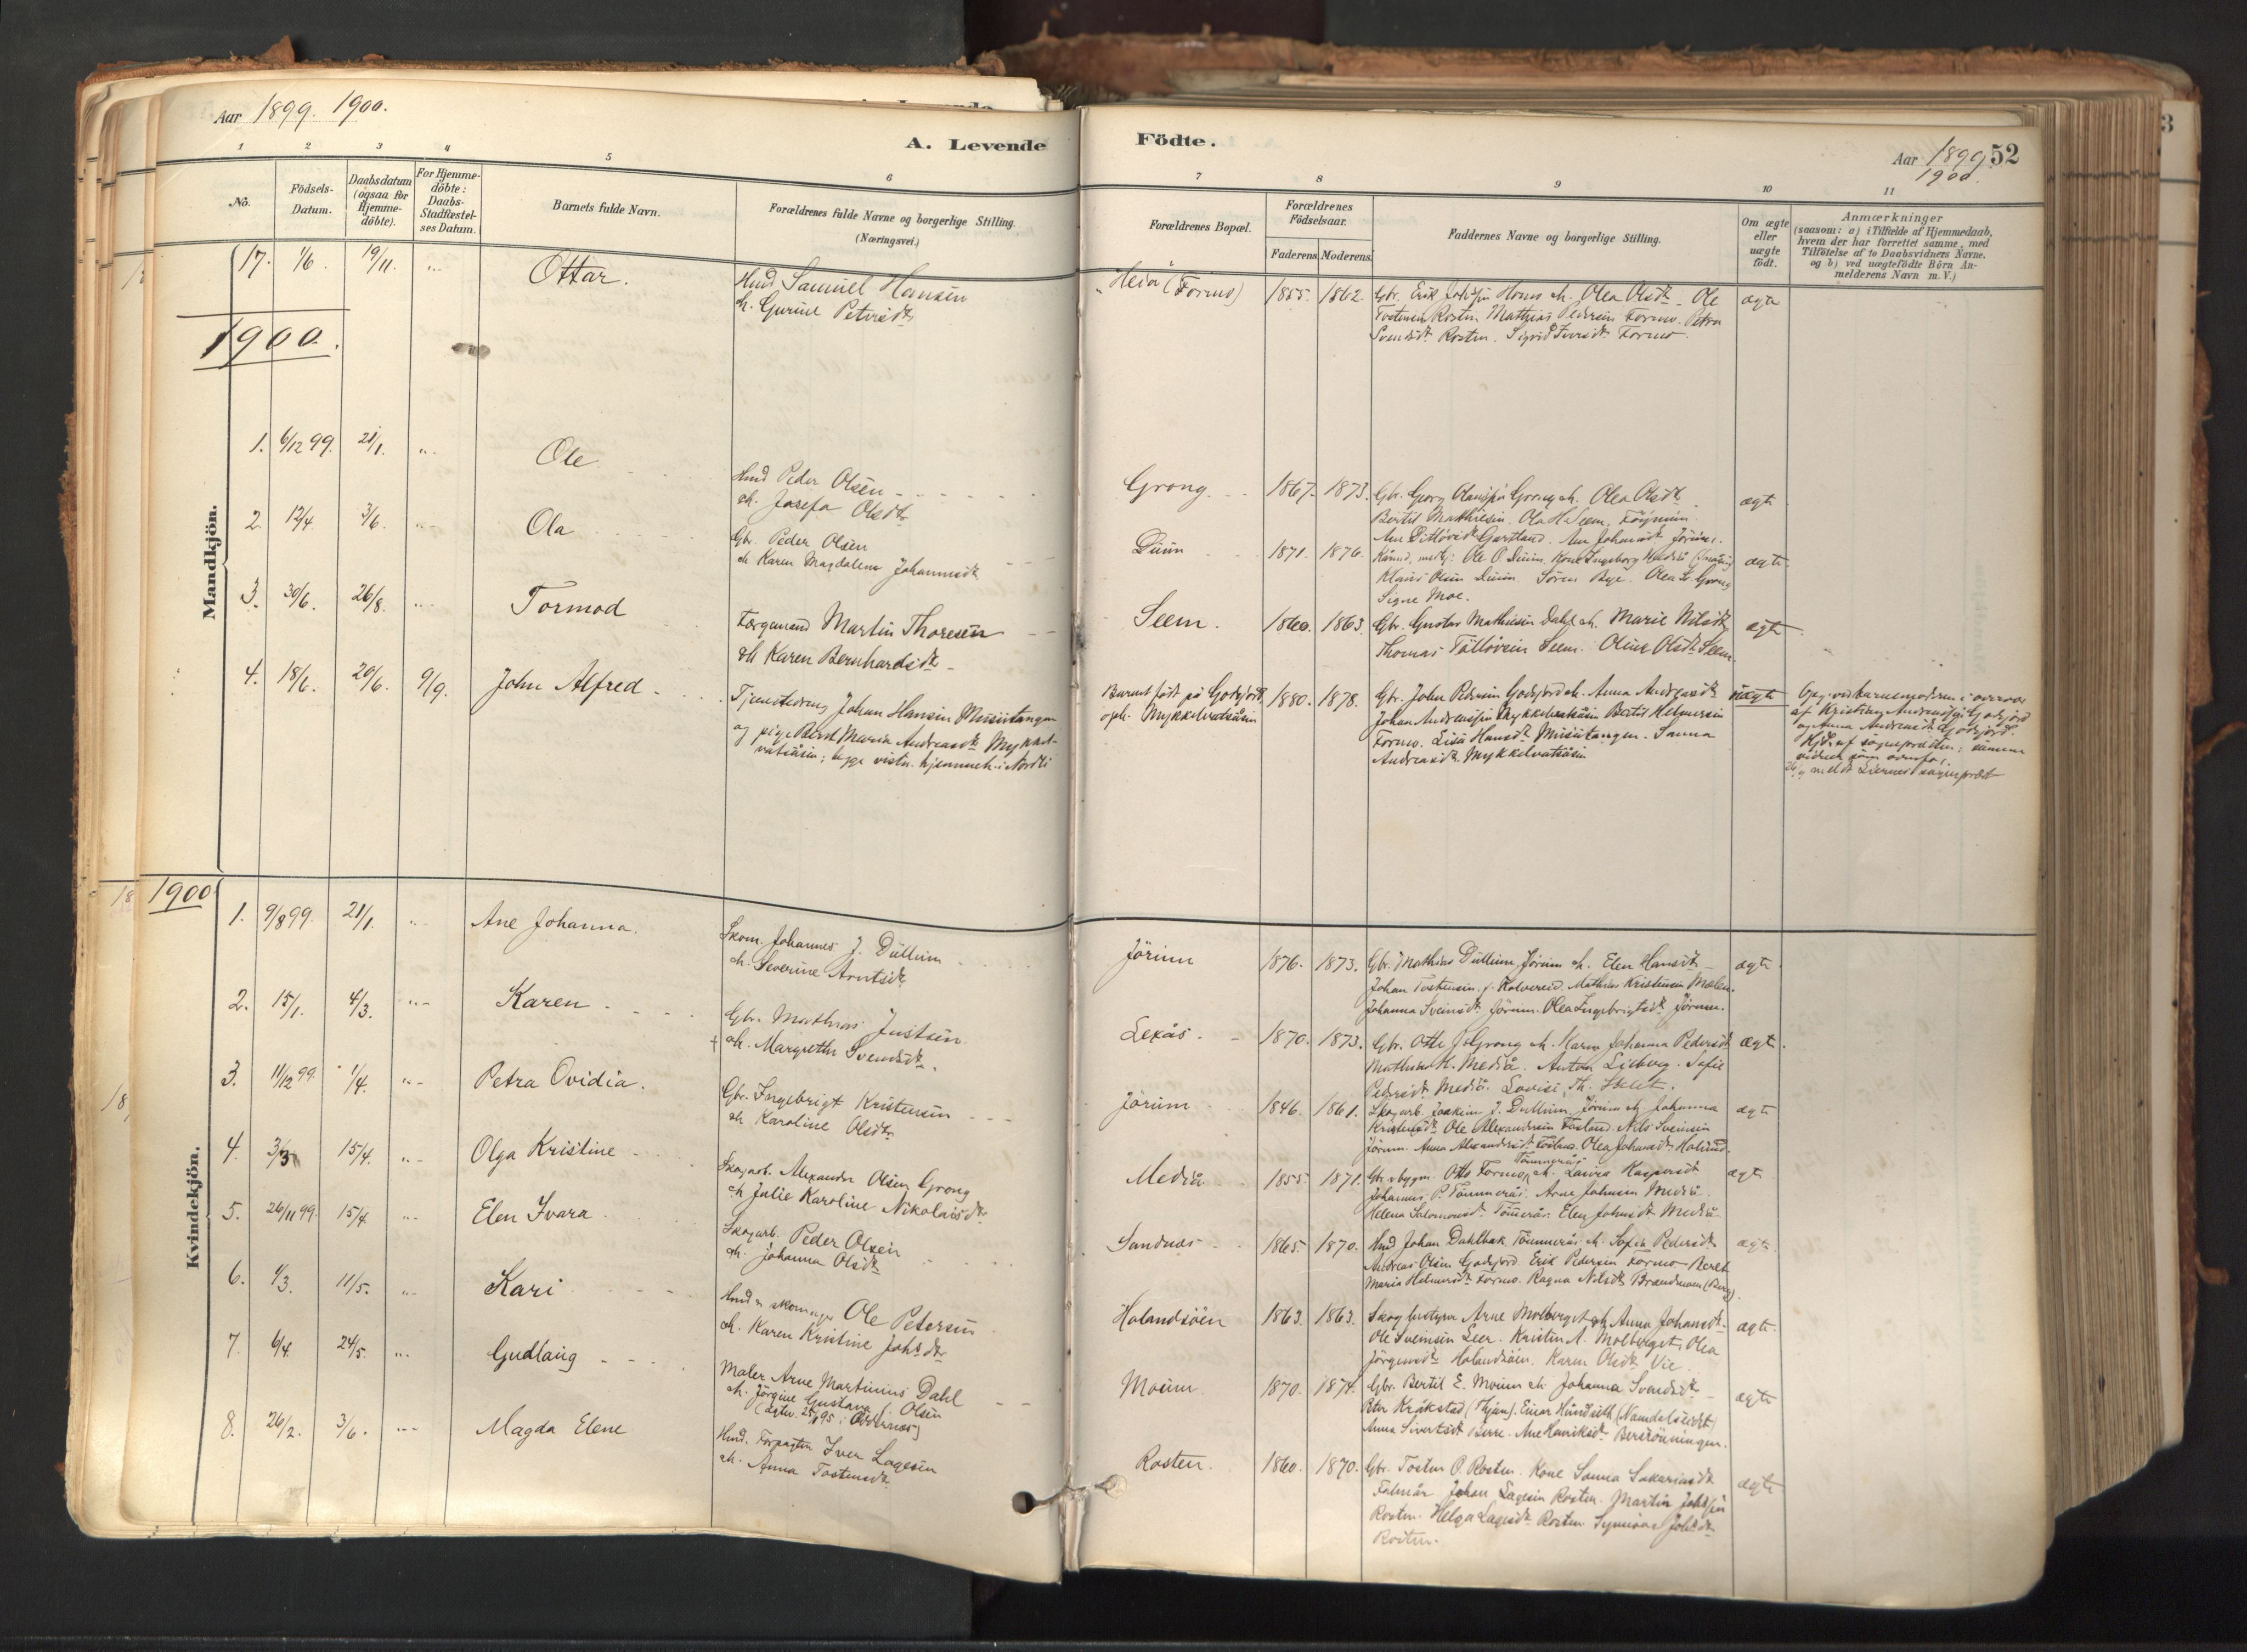 Aar 1899. 1900.
A. Levende
Födte.
Aar 1899 52
1900.
1 2 3 4 5 6 7 8 9 10 11
No.
Födsels-
Datum.
Daabsdatum
(ogsaa for
Hjemme-
döbte).
For Hjemme-
döbte:
Daabs-
Stadfæstel-
ses Datum.
Barnets fulde Navn.
Forældrenes fulde Navne og borgerlige Stilling.
(Næringsvei.)
Forældrenes Bopæl.
Forældrenes
Födselsaar.
Faderens. Moderens.
Faddernes Navne og borgerlige Stilling.
Om ægte
eller
uægte
födt.
Anmærkninger
(saasom: a) i Tilfælde af Hjemmedaab,
hvem der har forrettet samme, med
Tilföielse af to Daabsvidners Navne,
og b) ved uægtefödte Börn An-
melderens Navn m. V.)
17. 1/6. 19/11. Ottar.
Hmd Samuel Hansen
h. Gurine Petersdtr
Heia (Formo) 1855. 1862.
Olea Olsdtr Ole
Tostensen Rosten Matthias Pedersen Formo. Petra
Svendsdtr Rosten. Sigrid Iversdtr Formo.
ægte
1900.
Mandkjön.
1. 6/12 99. 21/1. Ole
Hmd Peder Olsen
h. Josefa Olsdtr
Grong. 1867. 1873.
Gbr. Georg Olaussen Grong h. Olea Olsdtr
Bertil Matthiesen. Ola H. Seem.
Ane Johansdt Jörum.
ægte
2. 12/4 3/6. Ola
Gbr. Peder Olsen
h Karen Magdalena Johannesdt
Duun 1871. 1876.
Ole O. Duun
Klaus Olsen Duun Sören Bye. Olea Grong
Signe Moe.
ægte
3. 30/6. 26/8. Tormod
Færgemand Martin Thoresen
h Karen Bernhardsdtr
Seem. 1860. 1863.
Gbr. Gustav Mathiesen Dahl h. Marie Nilsdtr
Thomas Tölløvsen Seem. Oline Olsdtr Seem.
ægte
4. 18/6. 20/6. 9/9. John Alfred
Tjenestedreng Johan Hansen Musiitangen
og pige Beret Maria Andreasdt Mykkel-
vatsåsen; begge vistn. hjemmeh. i Nordli
Barnet født på Godejord
oph. Mykkelvatsåsen
1880. 1878.
Gbr. John Pedersen Godejord h. Anna Andreasdt
Johan Andreassen Mykkelvatsåsen Bertil Helmersen
Formo. Lisa Hansdt Musiitangen. Sanna
Andreasdt. Mykkelvatsåsen
uægte
Opg. ved barnemoderen i overvær
af Kristian Andreassen Godejord
og Anna Andreasdt Godejord.
Hjd. af sognepresten; samme
1900
Kvindekjön.
1. 9/8 99. 21/1. Ane Johanna.
Skom. Johannes J. Düllum
h. Severine Arntsdtr
Jörum 1876. 1873.
Gbr. Mathias Düllum, Jörum h. Elen Hansdt
Johan Tostensen. Mathias Kristensen Mælen.
Johanna Sveinsdt Jörum. Olea Ingebrigtsdt Jörum.
ægte
2. 15/1. 4/3. Karen
Gbr. Mathias Justsen
h. Margrethe Svendsdt.
Lexås. 1870. 1873.
Gbr. Otte J. Grong h. Karen Johanna Pedersdt
Mathias H. Mediå. Anton Liberg. Sofie
Pedersdt Mediå. Lovise
ægte
3. 11/12 99. 1/4. Petra Ovidia.
Gbr. Ingebrigt Kristensen
h Karoline Olsdtr
Jörum 1846. 1861.
Skogarb. Joakim J. Dullum. Jörum h Johanna
Kristensdt. Ole Alexandersen Fosland. Nils Sveinsen
Jörum. Anna Alexandersdt Fosland. Olea Johansdt
ægte
4. 3/3 15/4. Olga Kristine
Skogarb. Alexander Olsen Grong
h Julie Karoline Nikolaisdt.
Mediå 1855. 1871.
Tömmerås
Otto Formo h. Laura Kaspersdt
Johannes P. Tömmerås. Arne Johnsen Mediå.
Helena Salomonsdt Tömmerås. Elen Johnsdt Mediå
ægte
5. 26/11 99. 15/4. Elen Ivara
Skogarb. Peder Olsen
h. Johanna Olsdt
Sandnæs 1865. 1870.
Hmd Johan Dahlbak Tömmerås h. Sofie Pedersdt
Andreas Olsen Godejord. Erik Pedersen Formo Beret
Maria Helmersdt Formo. Ragna Nilsdt Brandmoen (Berg).
ægte
6. 1/3. 11/5. Kari
Hmd & skomager Ole Petersen
h. Karen Kristine Johsdtr
Holandsöen 1863. 1863.
Arne Molberget h Anna Johansdt
Ole Sveinsen Leer. Kristen A. Molberget, Olea
Jörgensdt Holandsöen. Karen Olsdt Vie.
ægte
7. 6/4. 24/5. Gudlaug
Maler Arne Martinius Dahl
h. Jörgine Gustava f. Olsen
Moum 1870. 1874.
Gbr. Bertil E. Moum h. Johanna Svendsdt
Peter Kråkstad
Anna Sivertsdt Berre. Ane Henriksdt Bersrönningen.
ægte
8. 26/2. 3/6. Magda Elene
Hmd. Forpagter Iver Lagesen
h. Anna Tostensdt
Rosten. 1860. 1870.
Gbr. Tosten O. Rosten. Kone Sanna Sakariasdt
Johan Lagesen Rosten. Martin Johssen
Rosten. Helga Lagesdt Rosten. Johsdt
Rosten.
ægte